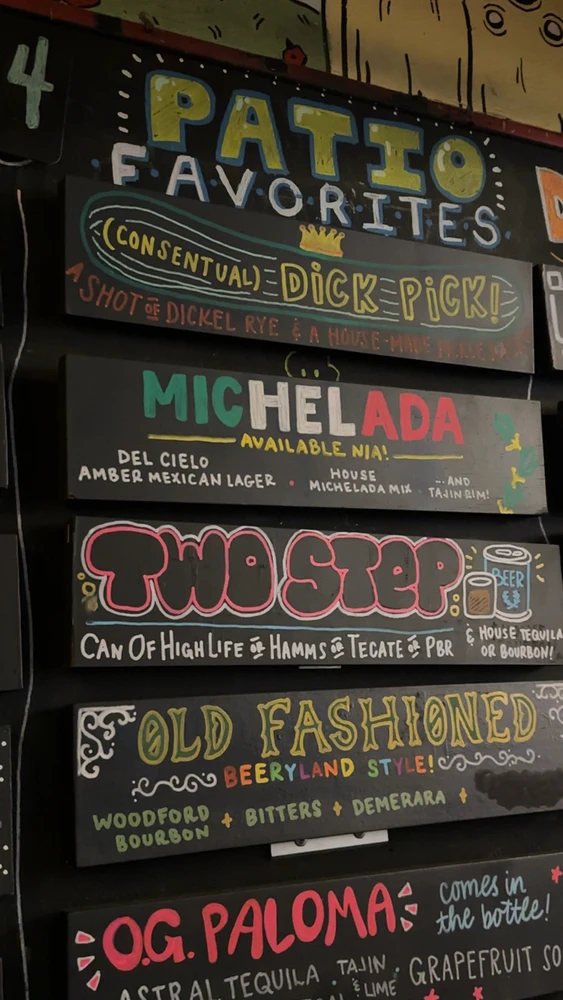 4
PATIO
FAVORITES
(CONSENTUAL) DICK PICK!
A SHOT OF DICKEL RYE & A HOUSE-MADE
MICHELADA
AVAILABLE N/A!
DEL CIELO
AMBER MEXICAN LAGER
HOUSE
MICHELADA MIX
...AND
TAJIN RIM!
TWO STEP
BEER
CAN OF HIGH LIFE OR HAMMS OR TECATE OR PBR
& HOUSE TEQUILA
OR BOURBON!
OLD FASHIONED
BEERYLAND STYLE!
WOODFORD
BOURBON + BITTERS + DEMERARA +
O.G. PALOMA
comes in
the bottle!
ASTRAL TEQUILA
TAJIN
& LIME
GRAPEFRUIT SO